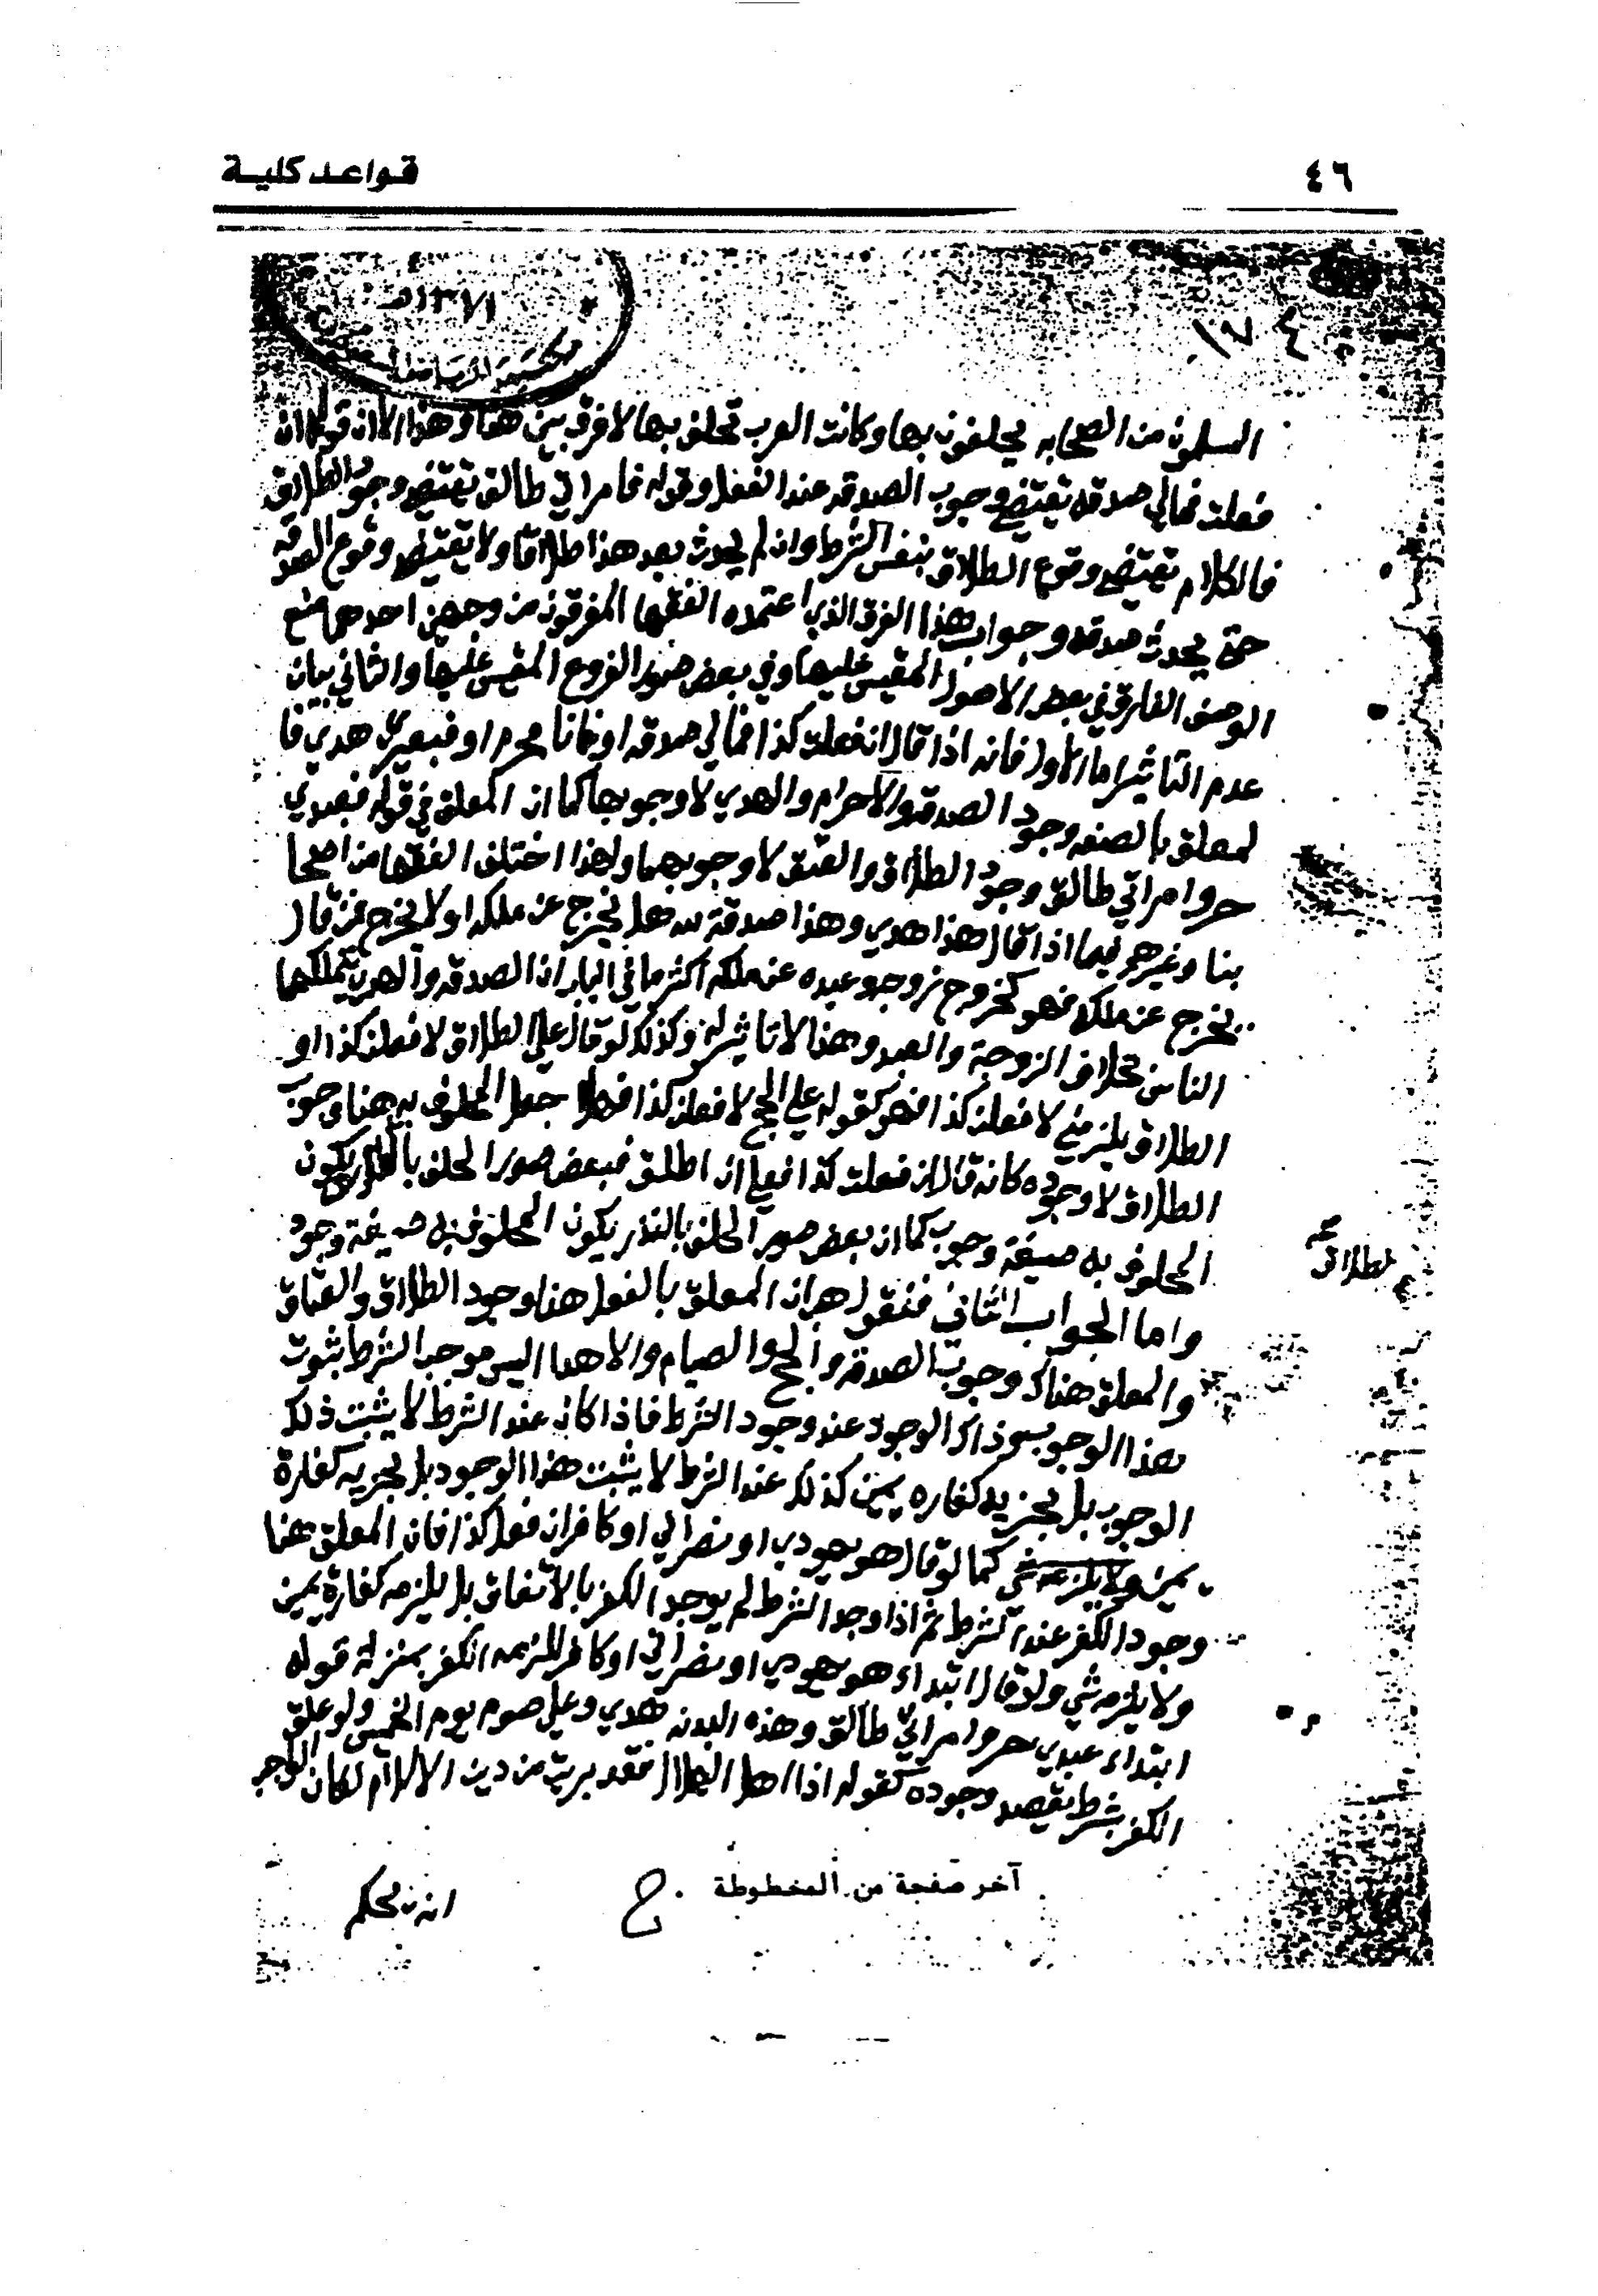 ٤٦
قواعد كلية
١٣٧١هـ
١٧٤
المسلمون من الصحابه يحلفون بها وكانت العرب تحلف بها لا فرق بين هذا وهذا لان قوله ان
فعلت فمالي صدقه يقتضي وجوب الصدقه عند الفعل وقوله فامراتي طالق يقتضي وجود الطلاق
فالكلام يقتضي وقوع الطلاق بنفس الشرط وان لم يحدث بعد هذا طلاقا ولا يقتضي وقوع الصدقه
حتى يحدث صدقه وجواب هذا الفرق الذي اعتمده الفقها المفرقون من وجهين احدهما منع
الوصف الفارق في بعض الاصول المقيس عليها وفي بعض صور الفروع المقيس عليها والثاني بيان
عدم التاثير اما الاول فانه اذا قال ان فعلت كذا فمالي صدقه او فانا محرم او فبعيري هدي فا
لمعلق بالصفه وجود الصدقه والاحرام والهدي لا وجوبها كما ان المعلق في قوله فعبدي
حر وامراتي طالق وجود الطلاق والعتق لا وجوبهما ولهذا اختلف الفقها من اصحا
بنا وغيرهم فيما اذا قال هذا هدي وهذا صدقة لله هل يخرج عن ملكه او لا يخرج فمن قال
يخرج عن ملكه فهو كخروج زوجه وعبده عن ملكه اكثر ما في الباب ان الصدقه والهدي يتملكها
الناس بخلاف الزوجة والعبد وهذا لا تاثير له وكذلك لو قال علي الطلاق لافعلن كذا او
الطلاق يلزمني لافعلن كذا فهو كقوله علي الحج لافعلن كذا فهلا جعل المحلوف به هنا وجوب
الطلاق لا وجوده كانه قال ان فعلت كذا فعلي ان اطلق فبعض صور الحلف بالطلاق يكون
المحلوف به صيغة وجوب كما ان بعض صور الحلف بالنذر يكون المحلوف به صيغة وجود
لطلاق
واما الجواب الثاني فنقول هب ان المعلق بالفعل هنا وجود الطلاق والعتاق
والمعلق هناك وجوب الصدقه والحج والصيام والاهدا اليس موجب الشرط ثبوت
هذا الوجوب عند وجود الشرط فاذا كان عند الشرط لا يثبت ذلك
الوجوب بل يجزيه كفاره يمين كذلك عند الشرط لا يثبت هذا الوجود بل يجزيه كفارة
يمين كما لو قال هو يهودي او نصراني او كافر ان فعل كذا فان المعلق هنا
وجود الكفر عند الشرط ثم اذا وجد الشرط لم يوجد الكفر بالاتفاق بل يلزمه كفارة يمين
ولا يلزمه شي ولو قال ابتداء هو يهودي او نصراني او كافر للزمه الكفر بمنزلة قوله
ابتداء عبدي حر وامراتي طالق وهذه البدنه هدي وعلي صوم يوم الخميس ولو علق
الكفر بشرط يقصد وجوده كقوله اذا اهل الهلال فقد بريت من دين الاسلام لكان الواجب
آخر صفحة من المخطوطة
انه يحكم